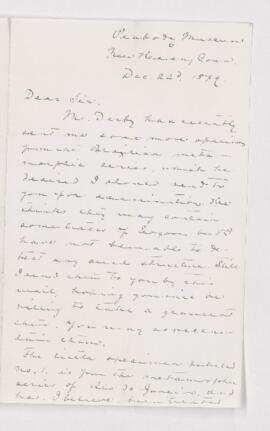 Peabody Museum
New Haven, Conn.
Dec. 22d, 1879.
Dear Sir.
Mr. Derby has recently
sent me some more specimens
from the Brazilian meta-
morphic series, which he
desired I should send to
you for examination. He
thinks they may contain
some traces of Eozoon but I
have not been able to de-
tect any such structure. Still
I send them to you by this
mail, hoping you may be
willing to take a glance at
them. You may as well re-
tain them.
The little specimen labeled
No. 1. is from the metamorphic
series of Rio de Janeiro, and
has, I believe, been treated